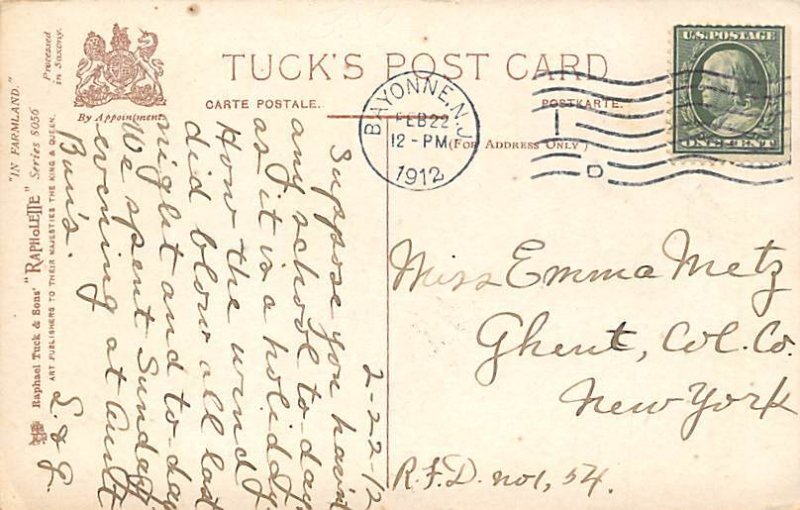 "IN FARMLAND."
Raphael Tuck & Sons' "RAPHOLETTE" Series 8056
ART PUBLISHERS TO THEIR MAJESTIES THE KING & QUEEN.
Processed
in Saxony.
By Appointment.
TUCK'S POST CARD
CARTE POSTALE.
POSTKARTE.
(FOR ADDRESS ONLY)
BAYONNE, N.J.
FEB 22
12-PM
1912
D
U.S. POSTAGE
ONE CENT
2-22-12
Suppose you hav'nt
any school to-day
as it is a holiday.
How the wind
did blow all last
night and to-day
We spent Sunday
evening at Aunt
Bun's.
Miss Emma Metz
Ghent, Col. Co.
New York
R.F.D. no1, 54.